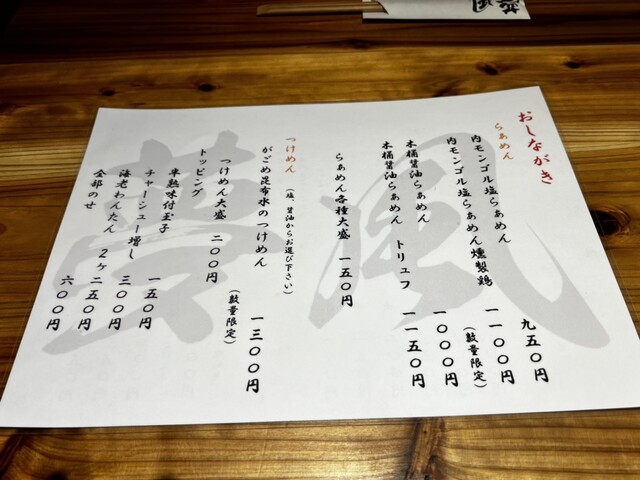 おしながき
らぁめん
内モンゴル塩らぁめん 九五〇円
内モンゴル塩らぁめん燻製鶏 一一〇〇円
(数量限定)
木桶醤油らぁめん 一〇〇〇円
木桶醤油らぁめん トリュフ 一一五〇円
らぁめん各種大盛 一五〇円
つけめん (塩、醤油からお選び下さい)
がごめ昆布水のつけめん 一三〇〇円
(数量限定)
つけめん大盛 二〇〇円
トッピング
半熟味付玉子 一五〇円
チャーシュー増し 三〇〇円
海老わんたん 2ヶ 二五〇円
全部のせ 六〇〇円
夢風